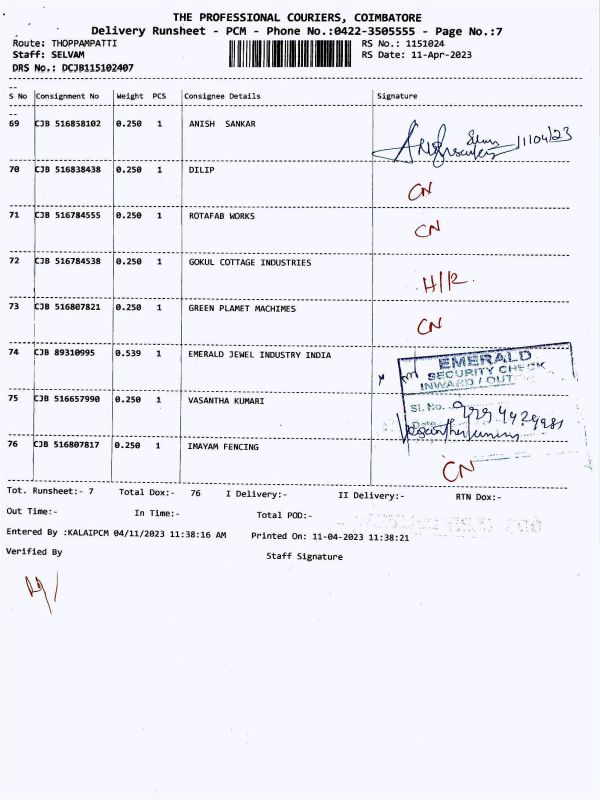 THE PROFESSIONAL COURIERS, COIMBATORE
Delivery Runsheet - PCM - Phone No.:0422-3505555 - Page No.:7
Route: THOPPAMPATTI RS No.: 1151024
Staff: SELVAM RS Date: 11-Apr-2023
DRS No.: DCJB115102407
S No Consignment No Weight PCS Consignee Details Signature
69 CJB 516858102 0.250 1 ANISH SANKAR 11/04/23
70 CJB 516838438 0.250 1 DILIP CN
71 CJB 516784555 0.250 1 ROTAFAB WORKS CN
72 CJB 516784538 0.250 1 GOKUL COTTAGE INDUSTRIES H/R.
73 CJB 516807821 0.250 1 GREEN PLAMET MACHIMES CN
74 CJB 89310995 0.539 1 EMERALD JEWEL INDUSTRY INDIA
EMERALD
SECURITY CHECK
INWARD / OUT
Sl. No.
Date
75 CJB 516657990 0.250 1 VASANTHA KUMARI
76 CJB 516807817 0.250 1 IMAYAM FENCING CN
Tot. Runsheet:- 7 Total Dox:- 76 I Delivery:- II Delivery:- RTN Dox:-
Out Time:- In Time:- Total POD:-
Entered By :KALAIPCM 04/11/2023 11:38:16 AM Printed On: 11-04-2023 11:38:21
Verified By Staff Signature